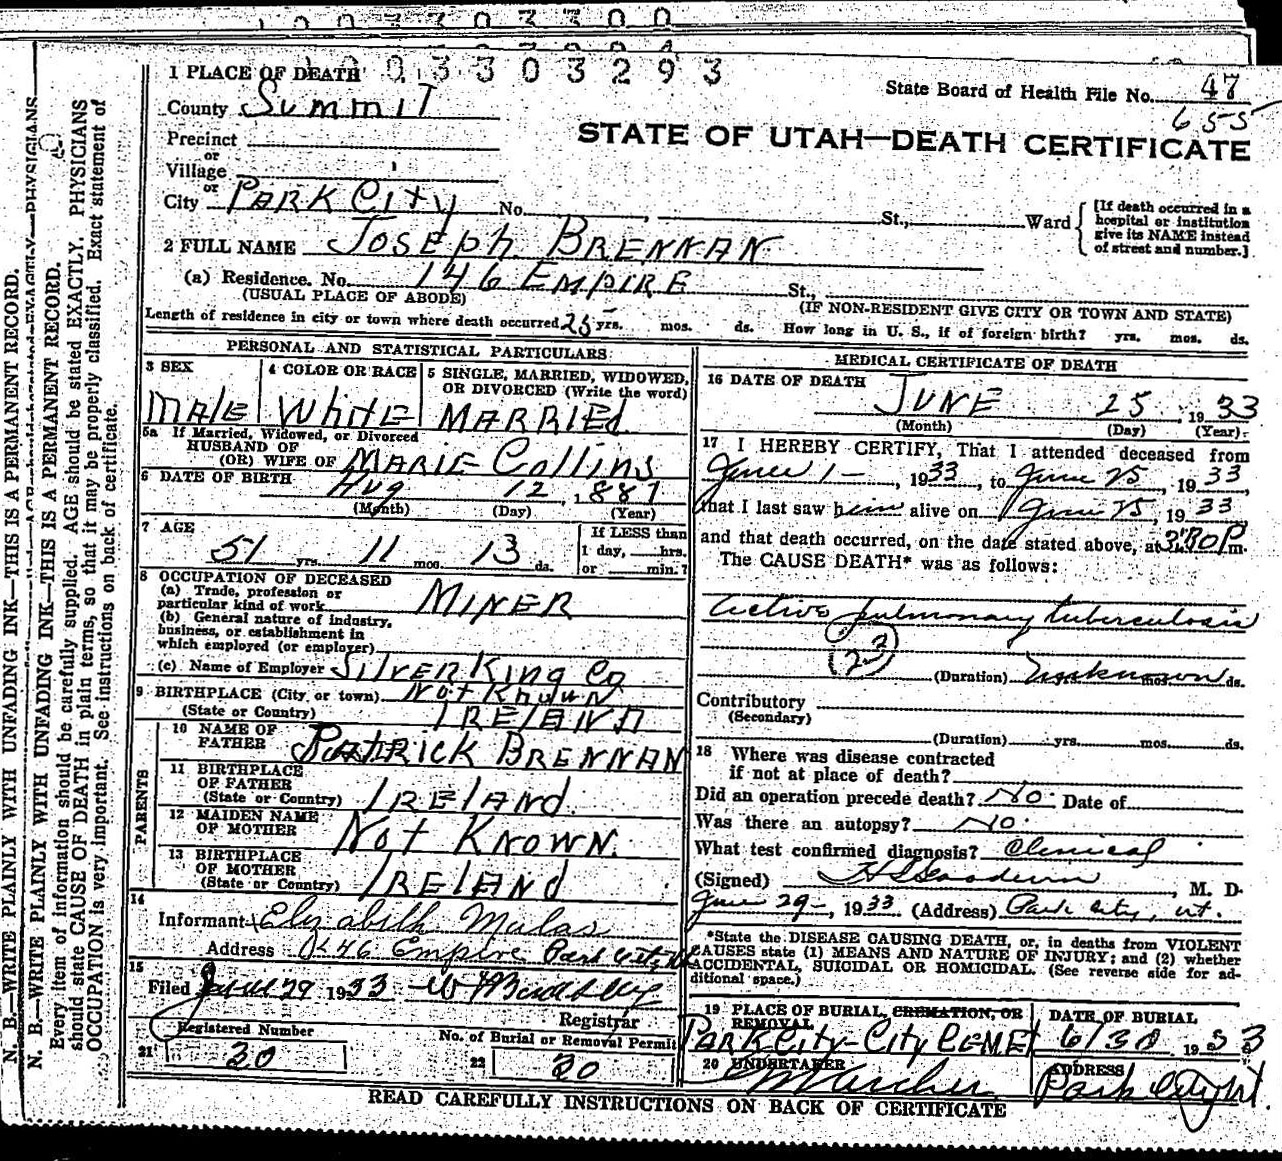 1003303293
1 PLACE OF DEATH
State Board of Health File No. 47
County Summit
655
Precinct
STATE OF UTAH—DEATH CERTIFICATE
or
Village
or
City PARK CITY No. , St., Ward
[If death occurred in a hospital or institution give its NAME instead of street and number.]
2 FULL NAME JOSEPH BRENNAN
(a) Residence. No. 146 EMPIRE St.,
(USUAL PLACE OF ABODE) (IF NON-RESIDENT GIVE CITY OR TOWN AND STATE)
Length of residence in city or town where death occurred 25 yrs. mos. ds. How long in U. S., if of foreign birth? yrs. mos. ds.
PERSONAL AND STATISTICAL PARTICULARS
3 SEX
MALE
4 COLOR OR RACE
WHITE
5 SINGLE, MARRIED, WIDOWED, OR DIVORCED (Write the word)
MARRIED
5a If Married, Widowed, or Divorced
HUSBAND OF
(OR) WIFE OF MARIE Collins
6 DATE OF BIRTH Aug 12, 1881
(Month) (Day) (Year)
7 AGE
51 yrs. 11 mos. 13 ds.
If LESS than
1 day, hrs.
or min.?
8 OCCUPATION OF DECEASED
(a) Trade, profession or
particular kind of work MINER
(b) General nature of industry,
business, or establishment in
which employed (or employer)
(c) Name of Employer SILVER KING Co
9 BIRTHPLACE (City or town) Not Known
(State or Country) IRELAND
PARENTS
10 NAME OF
FATHER PATRICK BRENNAN
11 BIRTHPLACE
OF FATHER
(State or Country) IRELAND.
12 MAIDEN NAME
OF MOTHER Not KNOWN.
13 BIRTHPLACE
OF MOTHER
(State or Country) IRELAND
14
Informant Elizabeth
Address 046 Empire Park City
15
Filed June 29 1933
Registrar
Registered Number
21 20
No. of Burial or Removal Permit
22 20
MEDICAL CERTIFICATE OF DEATH
16 DATE OF DEATH
JUNE 25, 1933
(Month) (Day) (Year)
17 I HEREBY CERTIFY, That I attended deceased from
June 1 -, 1933, to June 25, 1933,
that I last saw him alive on June 25, 1933
and that death occurred, on the date stated above, at 3:30 P m.
The CAUSE DEATH* was as follows:
Active pulmonary tuberculosis
(23)
(Duration) Unknown mos. ds.
Contributory
(Secondary)
(Duration) yrs. mos. ds.
18 Where was disease contracted
if not at place of death?
Did an operation precede death? No. Date of
Was there an autopsy? No.
What test confirmed diagnosis? Clinical
(Signed) , M. D.
June 29-, 1933. (Address) Park City, Ut.
*State the DISEASE CAUSING DEATH, or, in deaths from VIOLENT
CAUSES state (1) MEANS AND NATURE OF INJURY; and (2) whether
ACCIDENTAL, SUICIDAL OR HOMICIDAL. (See reverse side for ad-
ditional space.)
19 PLACE OF BURIAL, CREMATION, OR
REMOVAL
PARK CITY-CITY CEMET
DATE OF BURIAL
6/30 1933
20 UNDERTAKER
ADDRESS
Park City Ut.
READ CAREFULLY INSTRUCTIONS ON BACK OF CERTIFICATE
N. B.—WRITE PLAINLY WITH UNFADING INK—THIS IS A PERMANENT RECORD.
N. B.—WRITE PLAINLY WITH UNFADING INK—THIS IS A PERMANENT RECORD.
Every item of information should be carefully supplied. AGE should be stated EXACTLY. PHYSICIANS
should state CAUSE OF DEATH in plain terms, so that it may be properly classified. Exact statement of
OCCUPATION is very important. See instructions on back of certificate.